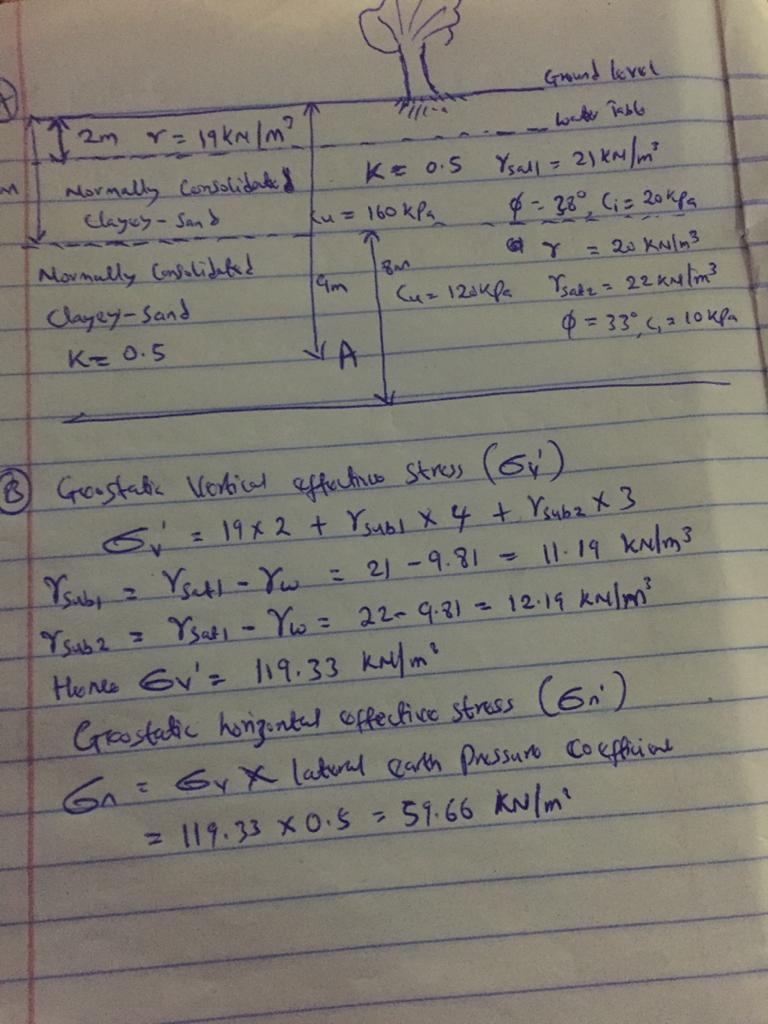 Ground level
2m r = 19KN/m³
Water Table
K = 0.5 γsat1 = 21KN/m³
Normally Consolidated
Clayey-Sand
Cu = 160 kPa
φ = 38°, Ci = 20kPa
γ = 20 KN/m³
Normally Consolidated
Clayey-Sand
K = 0.5
9m
8m
Cu = 120kPa
γsat2 = 22 KN/m³
φ = 33°, Ci = 10kPa
A
(B) Geostatic Vertical effective stress (σv')
σv' = 19x2 + γsub1 x 4 + γsub2 x 3
γsub1 = γsat1 - γw = 21 - 9.81 = 11.19 KN/m3
γsub2 = γsat1 - γw = 22 - 9.81 = 12.19 KN/m³
Hence σv' = 119.33 KN/m²
Geostatic horizontal effective stress (σn')
σn = σv x lateral earth Pressure Coefficient
= 119.33 x 0.5 = 59.66 KN/m²